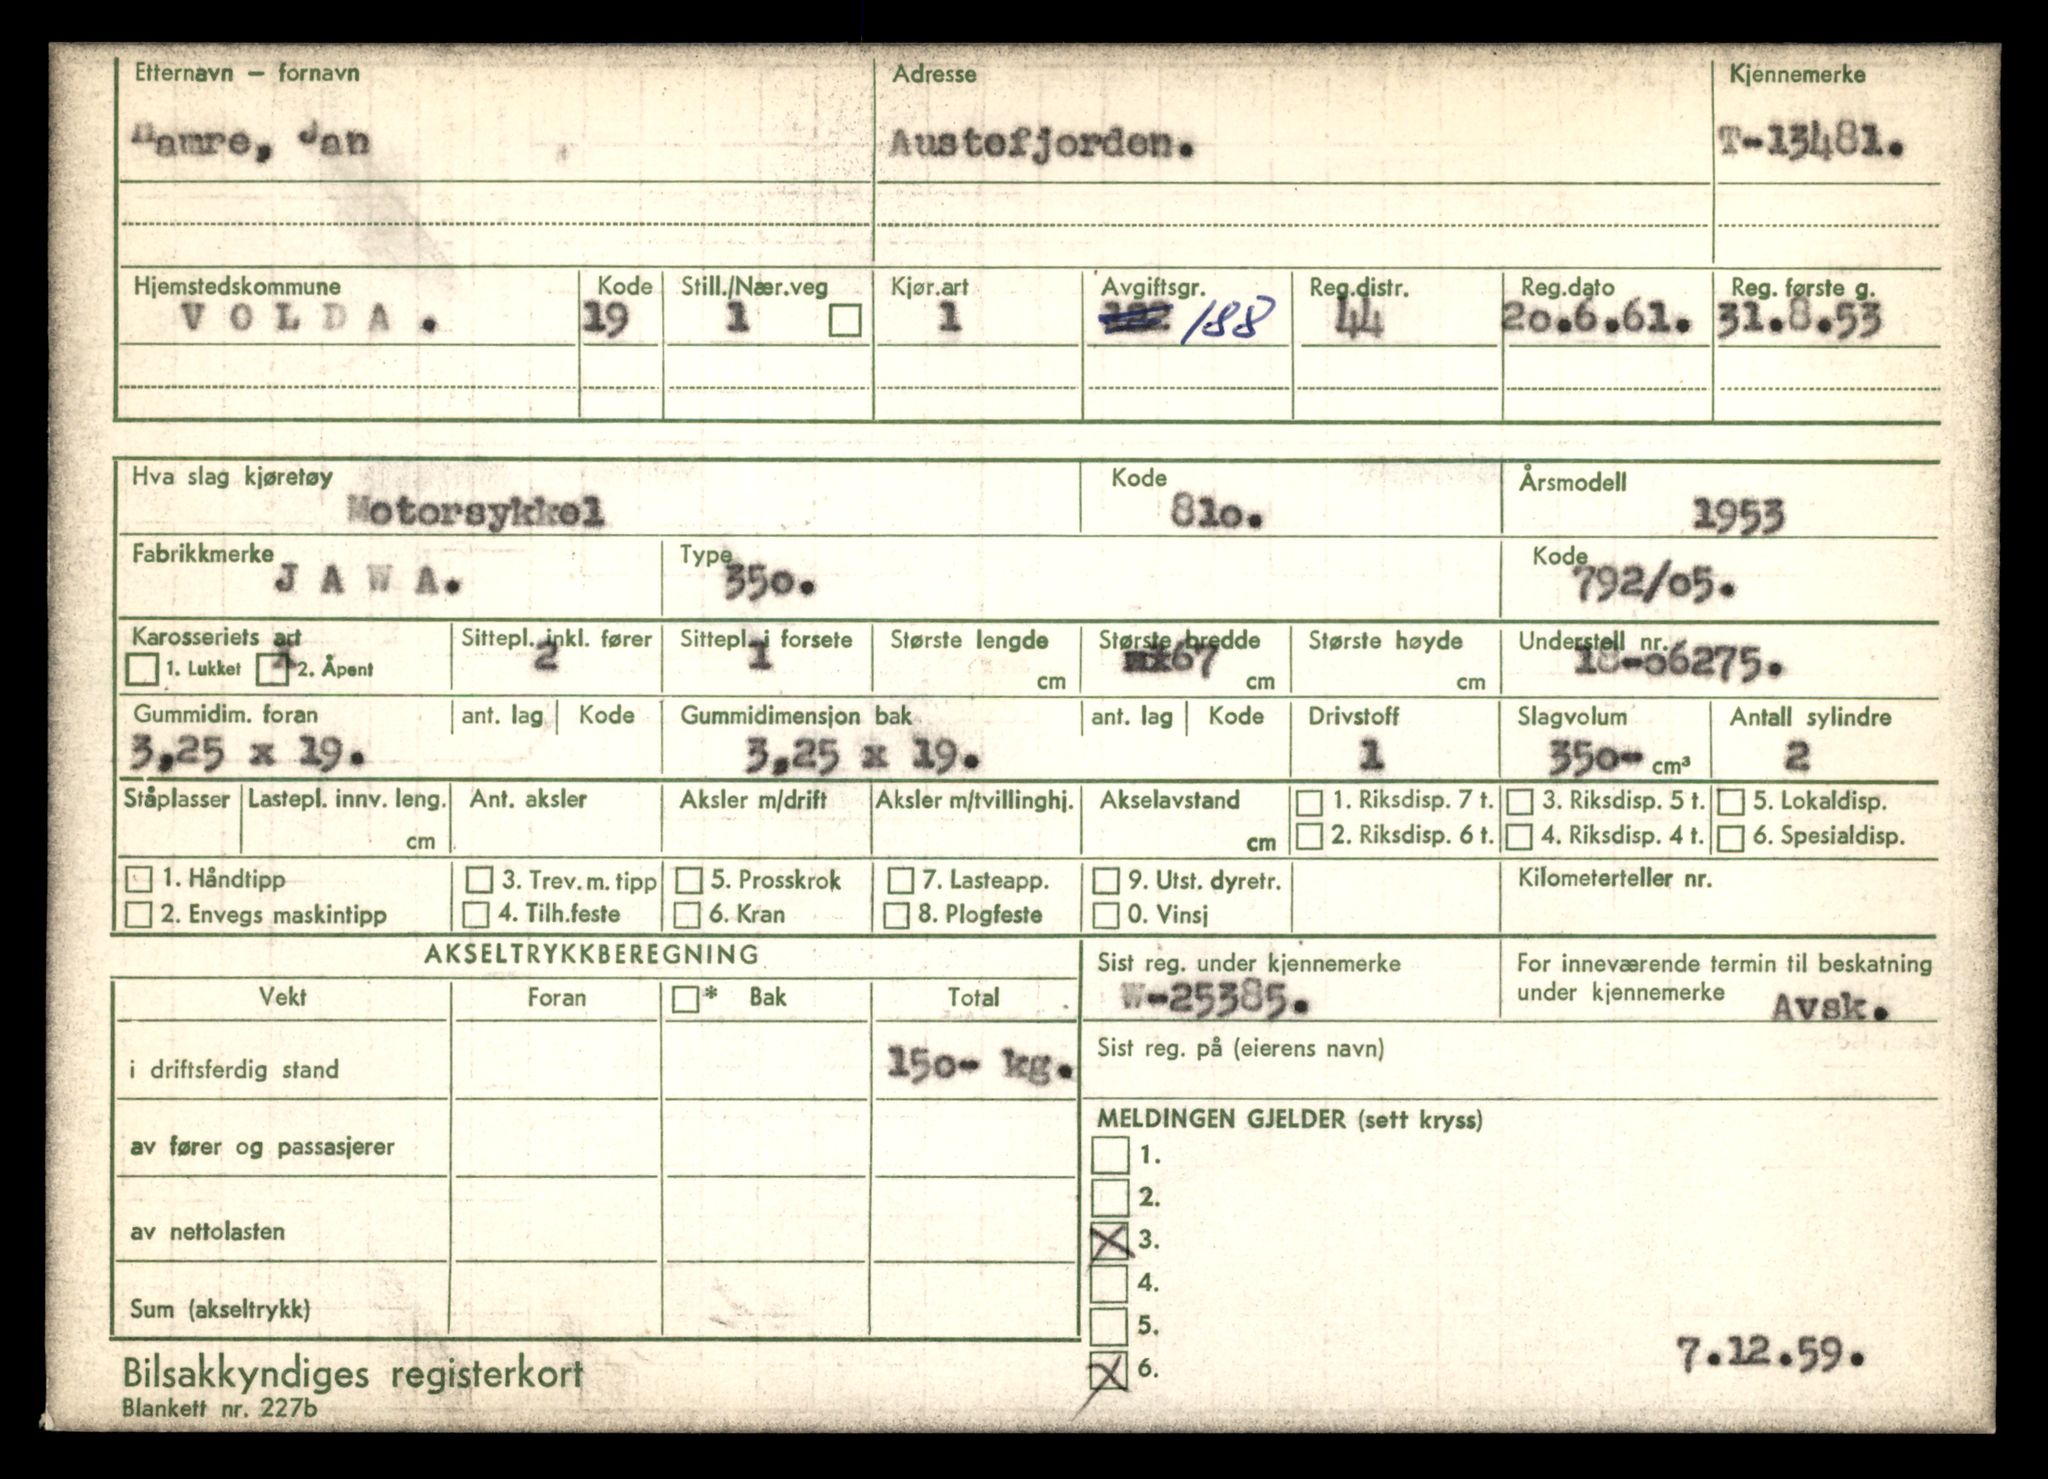 Etternavn – fornavn Adresse Kjennemerke
Hamre, Jan Austefjorden. T-13481.
Hjemstedskommune Kode Still./Nær.veg Kjør.art Avgiftsgr. Reg.distr. Reg.dato Reg. første g.
VOLDA. 19 1 1 188 44 20.6.61. 31.8.53
Hva slag kjøretøy Kode Årsmodell
Motorsykkel 81o. 1953
Fabrikkmerke Type Kode
JAWA. 35o. 792/o5.
Karosseriets art Sittepl. inkl. fører Sittepl. i forsete Største lengde Største bredde Største høyde Understell nr.
1. Lukket 2. Åpent 2 1 cm 67 cm cm 18-o6275.
Gummidim. foran ant. lag Kode Gummidimensjon bak ant. lag Kode Drivstoff Slagvolum Antall sylindre
3,25 x 19. 3,25 x 19. 1 35o- cm³ 2
Ståplasser Lastepl. innv. leng. Ant. aksler Aksler m/drift Aksler m/tvillinghj. Akselavstand 1. Riksdisp. 7 t. 3. Riksdisp. 5 t. 5. Lokaldisp.
cm cm 2. Riksdisp. 6 t. 4. Riksdisp. 4 t. 6. Spesialdisp.
1. Håndtipp 3. Trev. m. tipp 5. Prosskrok 7. Lasteapp. 9. Utst. dyretr. Kilometerteller nr.
2. Envegs maskintipp 4. Tilh.feste 6. Kran 8. Plogfeste 0. Vinsj
AKSELTRYKKBEREGNING
Vekt Foran * Bak Total
i driftsferdig stand 15o- kg.
av fører og passasjerer
av nettolasten
Sum (akseltrykk)
Sist reg. under kjennemerke
W-25385.
For inneværende termin til beskatning
under kjennemerke Avsk.
Sist reg. på (eierens navn)
MELDINGEN GJELDER (sett kryss)
1.
2.
X 3.
4.
5.
X 6.
7.12.59.
Bilsakkyndiges registerkort
Blankett nr. 227b